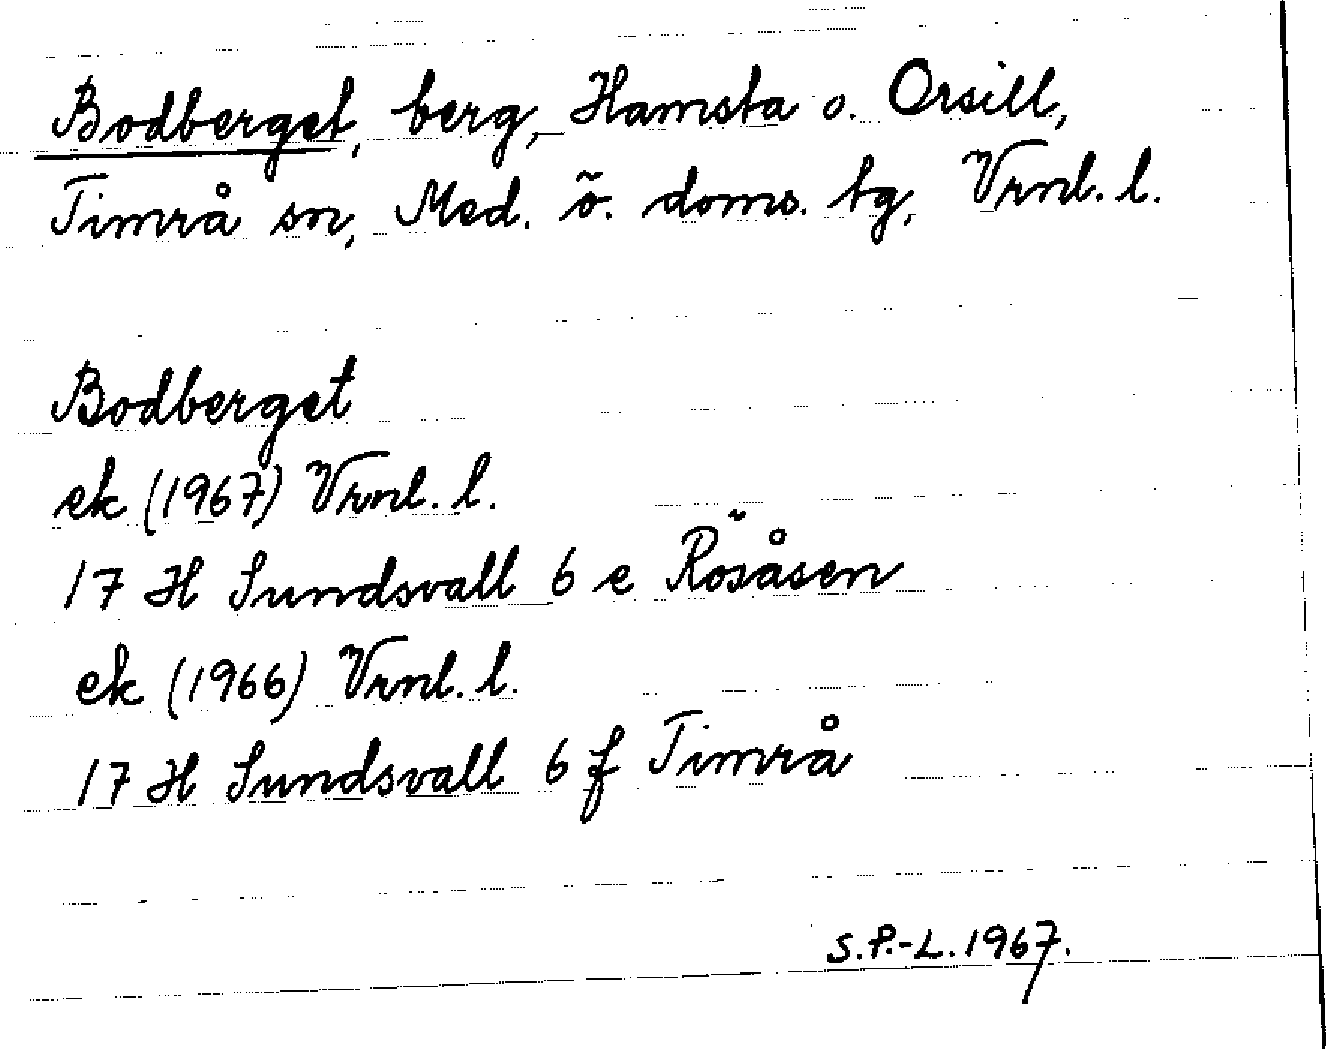 Bodberget, berg, Hamsta o. Orsill,
Timrå sn, Med. ö. doms. tg, Vrnl. l.
Bodberget
ek (1967) Vrnl. l.
17 H Sundsvall 6 e Rösåsen
ek (1966) Vrnl. l.
17 H Sundsvall 6 f Timrå
S.P.-L. 1967.